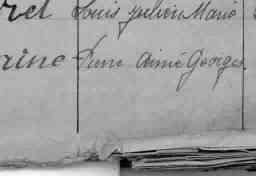 ret Louis Julien Marie
rine Pierre Aimé Georges